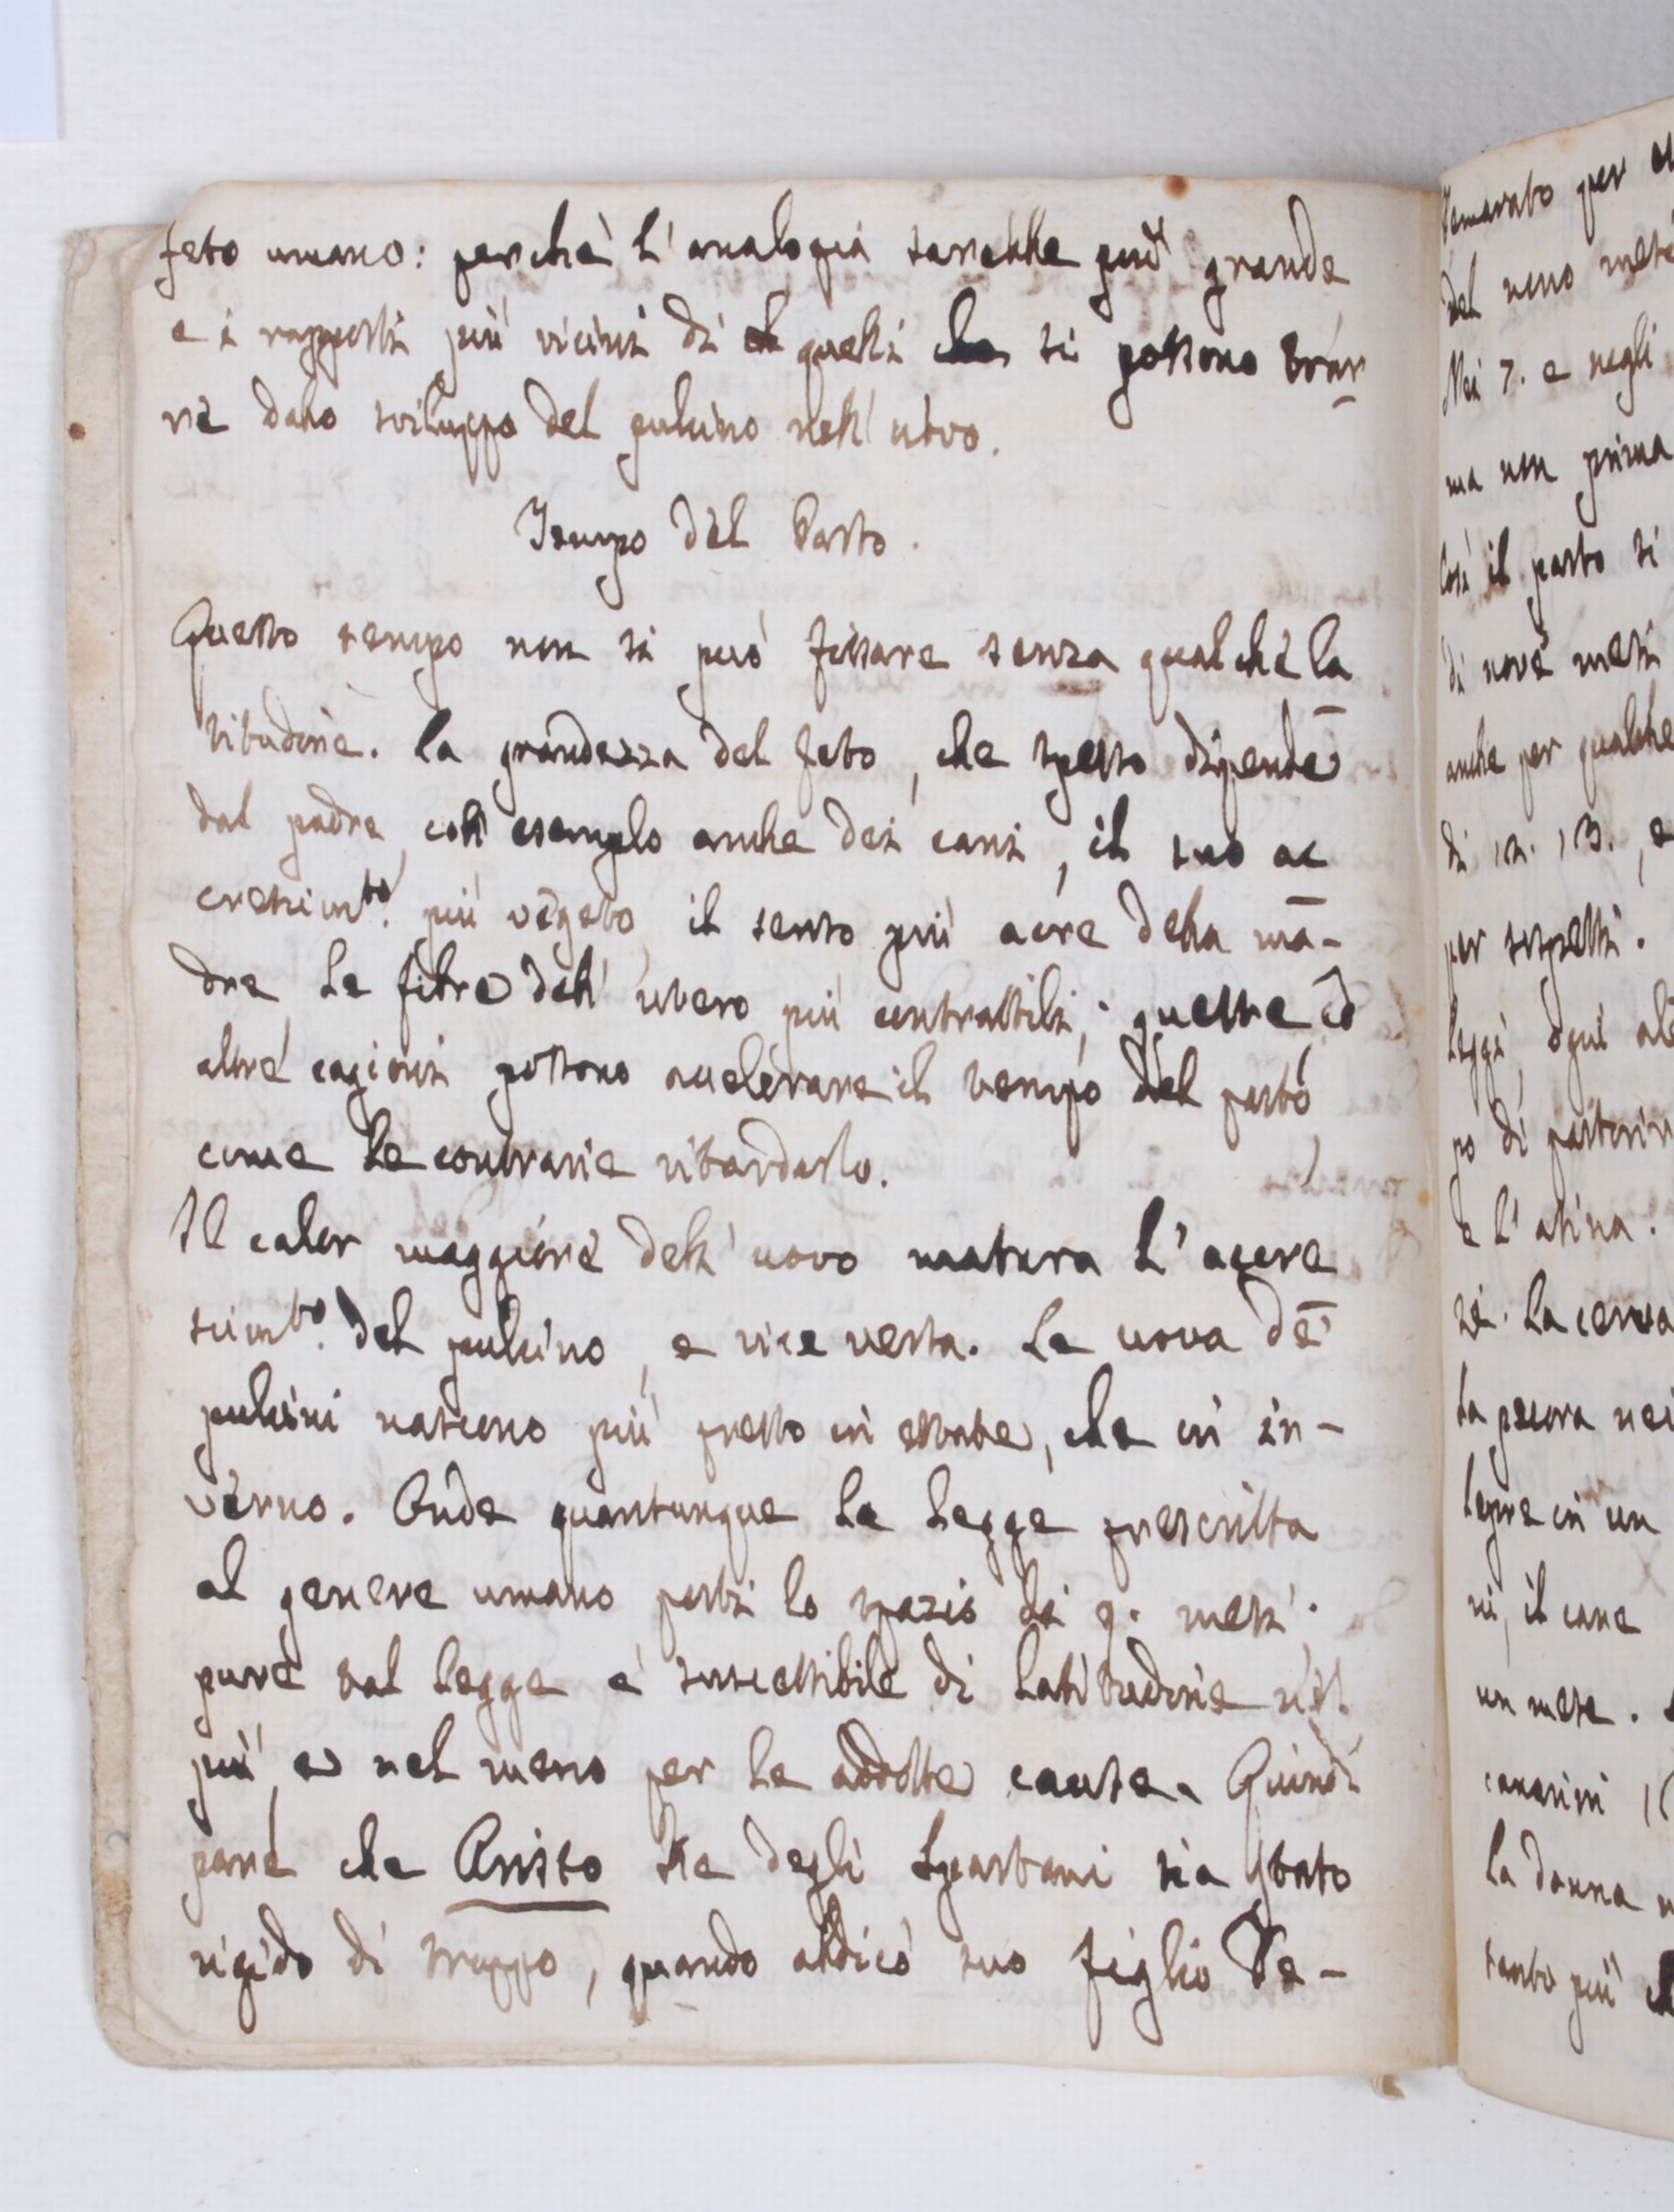 feto umano: perche l'analogia sarebbe più grande
e i rapporti più vicini di quelli che si possono trar
re dallo sviluppo del pulcino nell' utvo.
Tempo del Parto.
Questo tempo non si può fissare senza qualche la
titudine. La grandezza del feto, che spesso dipende
dal padre, coll' esemplo anche dei cani, il suo ac
crescimto. più vegeto, il senso più acre della ma-
dre, le fibre dell' utero più contrattili; queste, ed
altre cagioni possono accelerare il tempo del parto,
come le contrarie ritardarlo.
Il calor maggiore dell' uovo matura l' accre
scimto. del pulcino, e vice versa. Le uova de'
pulcini nascono più presto in estate, che in in-
verno. Onde quantunque la legge prescritta
al genere umano porti lo spazio di 9. mesi;
pure tal legge è suscettibile di latitudine nel
più, e nel meno per le addotte cause. Quindi
pare che Aristo Re degli Spartani sia stato
rigido di troppo, quando abdicò suo figlio De-
marato per
del nono mese
Nei 7. e negli
ma non prima
Così il parto si
di nove mesi
anche per qualche
di 12. 13.,
per sospetti.
leggi, ogni
po di partorir
e l' asina.
La cerva
la pecora nei
lepre in un
ni, il cane
un mese.
canarini
La donna
tanto più